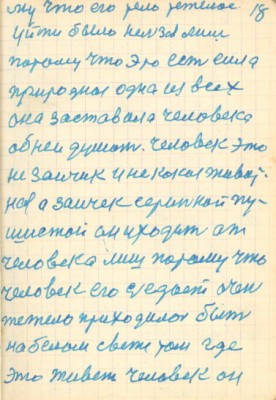 му что его рело тетелое 18
уйти было нелзя лиш
потому что это ест сила
природная одна из всех
она заставала человека
об ней думат. человек это
не заичик и не какой живот-
ное а заичек серинкой пу-
шистой он уходит от
человека лиш потому что
человек его съедает очен
тетело приходилос быт
на белом свете том где
это живет человек он